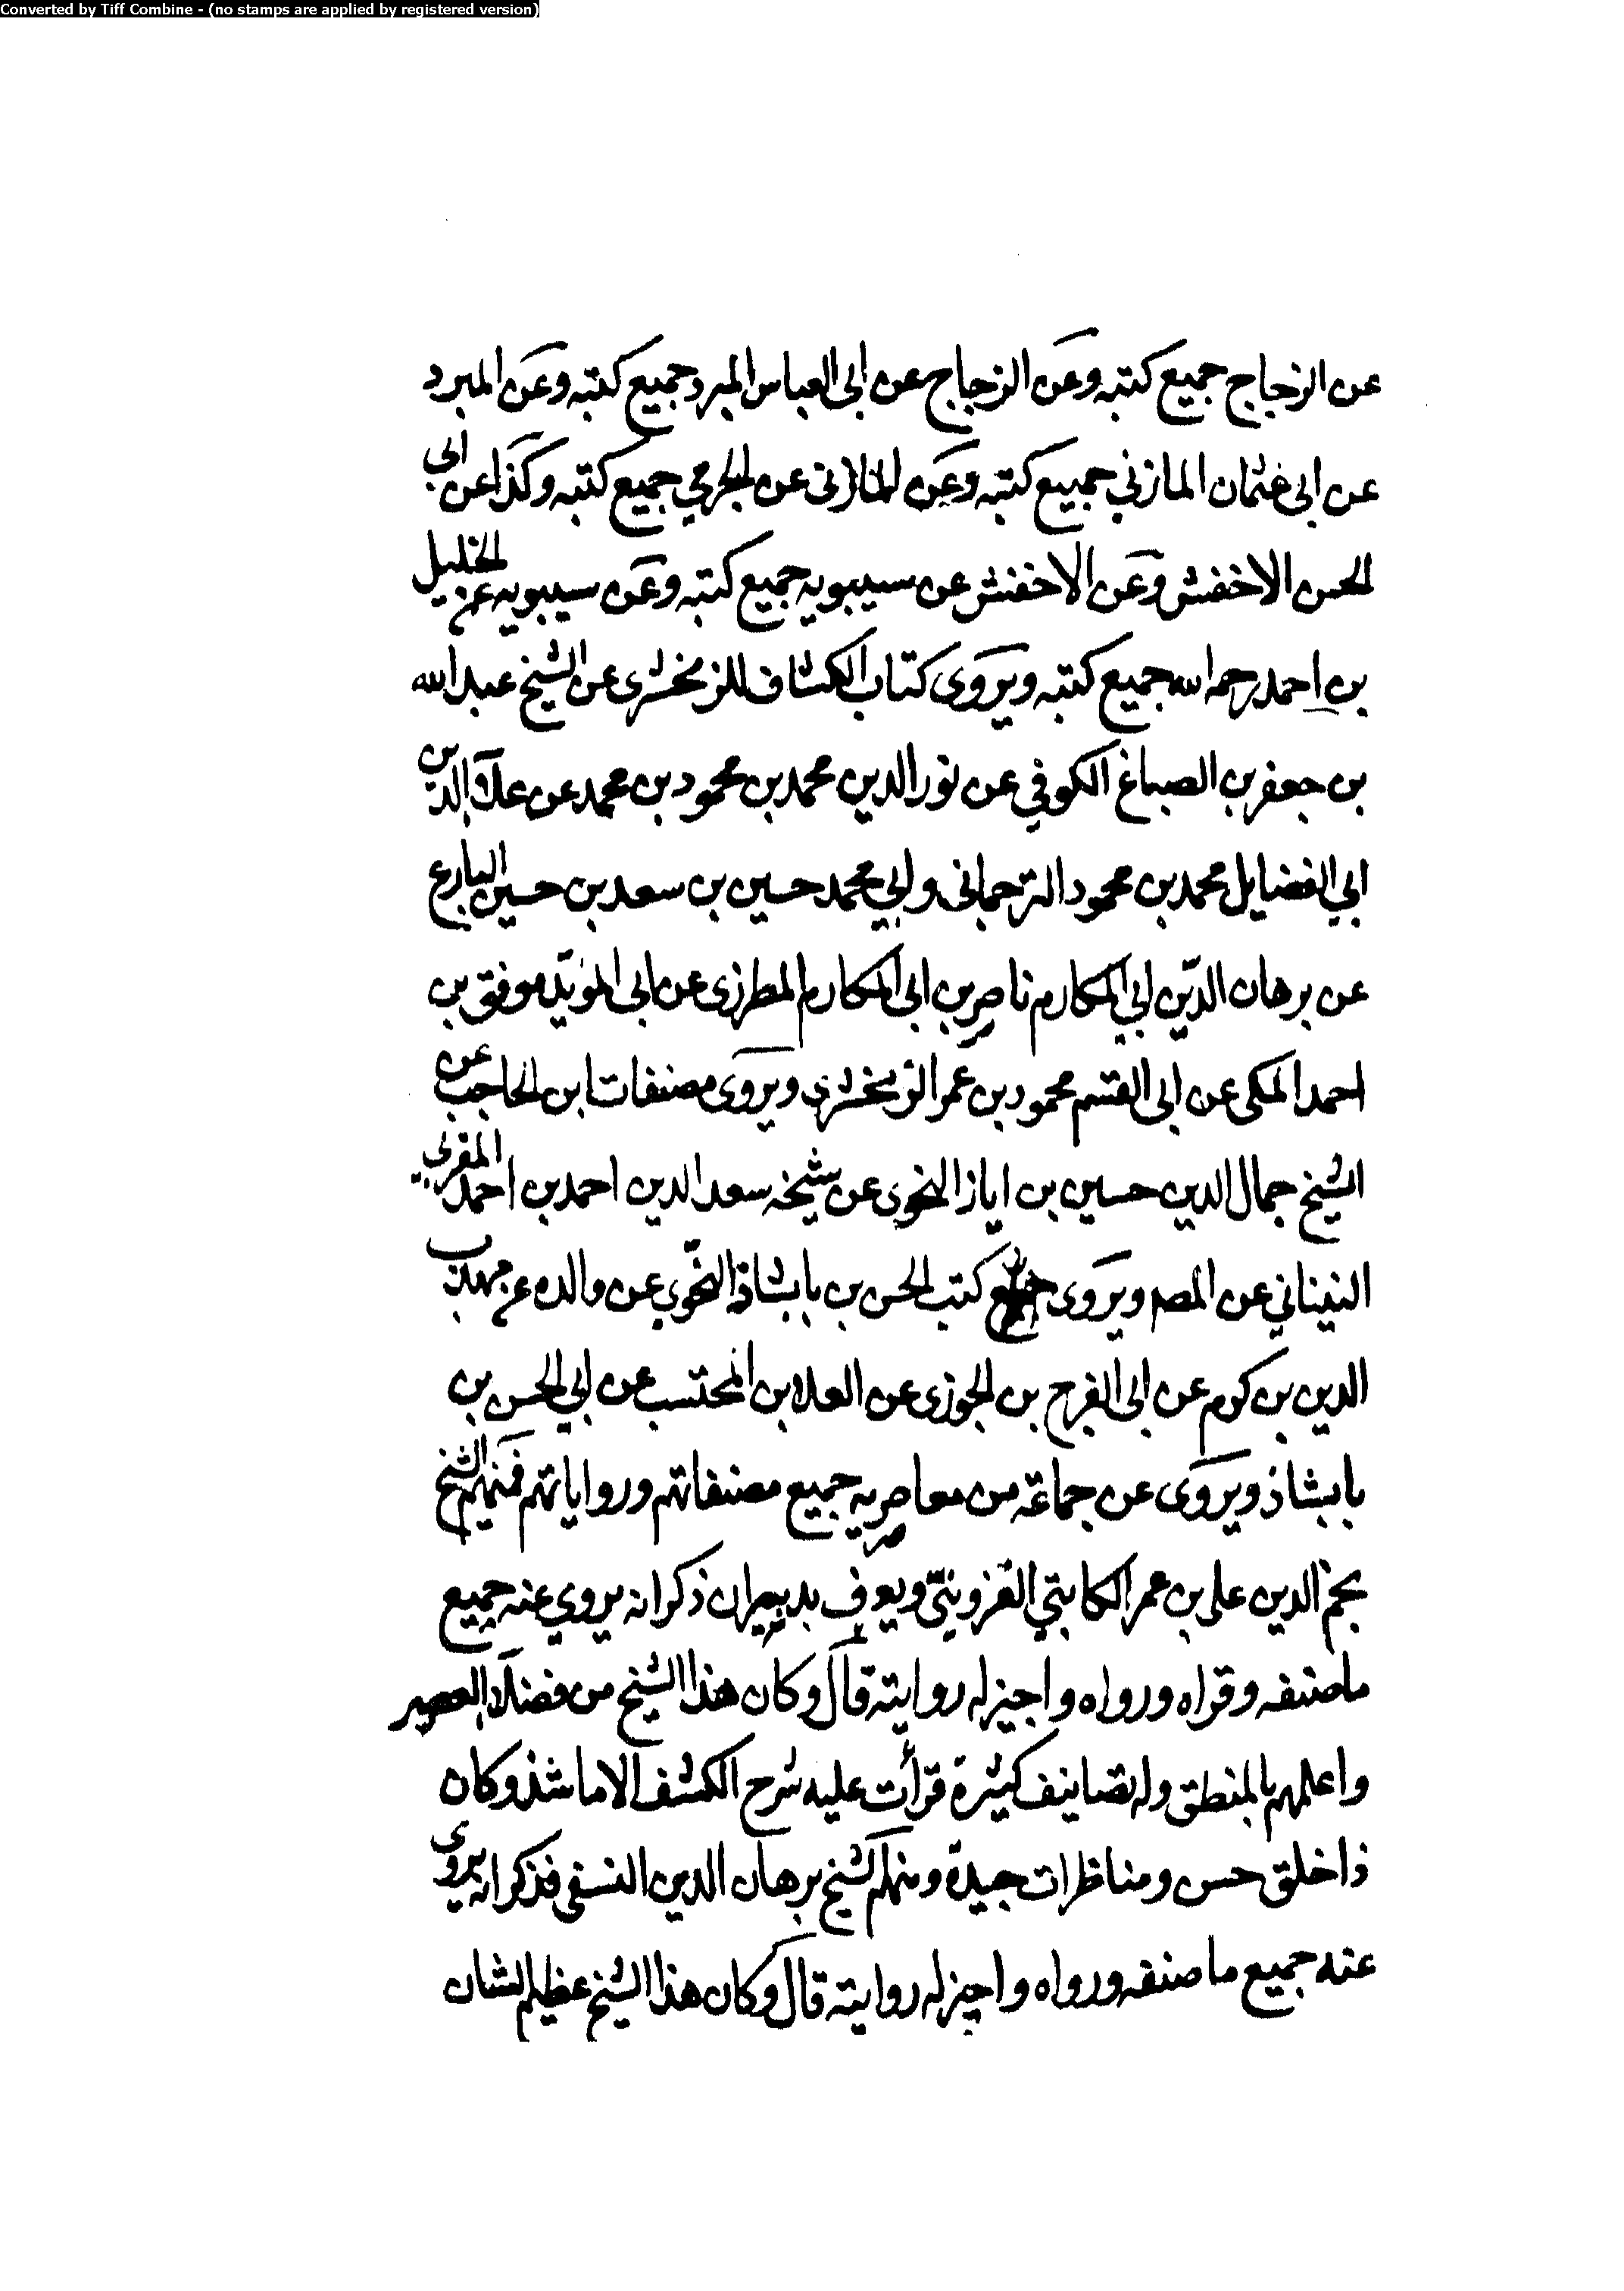 Converted by Tiff Combine - (no stamps are applied by registered version)
عن الزجاج جميع كتبه وعن الزجاج عن ابى العباس المبرد جميع كتبه وعن المبرد
عن ابى عثمان المازني جميع كتبه وعن المازنى عن الجرمي جميع كتبه وكذا عن ابي
الحسن الاخفش وعن الاخفش عن سيبويه جميع كتبه وعن سيبويه عن الخليل
بن احمد رحمه الله جميع كتبه ويروى كتاب الكشاف للزمخشرى عن الشيخ عبد الله
بن جعفر بن الصباغ الكوفي عن نور الدين محمد بن محمود بن محمد عن علاء الدين
ابي الفضايل محمد بن محمود الترجمانى وابي محمد حسين بن سعد بن حسين البارع
عن برهان الدين ابي المكارم ناصر بن ابى المكارم المطرزى عن ابى المؤيد موفق بن
احمد المكى عن ابى القسم محمود بن عمر الزمخشرى ويروى مصنفات ابن الحاجب عن
الشيخ جمال الدين حسين بن اياز النحوى عن شيخه سعد الدين احمد بن احمد المغربي
عن المصـ ويروى جميع كتب الحسن بن بابشاذ النحوي عن والده عن مهذب
الدين بن كرم عن ابى الفرج بن الجوزى عن العلا بن المحتسب عن ابي الحسن بن
بابشاذ ويروى عن جماعة من معاصريه جميع مصنفاتهم ورواياتهم فمنهم الشيخ
نجم الدين على بن عمر الكاتبي القزويني ويعرف بدبيران ذكر انه يروي عنه جميع
ما صنفه وقراه ورواه واجيز له روايته قال وكان هذا الشيخ من فضلاء العصر
واعلمهم بالمنطق وله تصانيف كثيرة قرأت عليه شرح الكشف الا ما شذ وكان
ذا خلق حسن ومناظرات جيدة ومنهم الشيخ برهان الدين النسفى فذكر انه يروى
عنه جميع ما صنفه ورواه واجيز له روايته قال وكان هذا الشيخ عظيم الشان